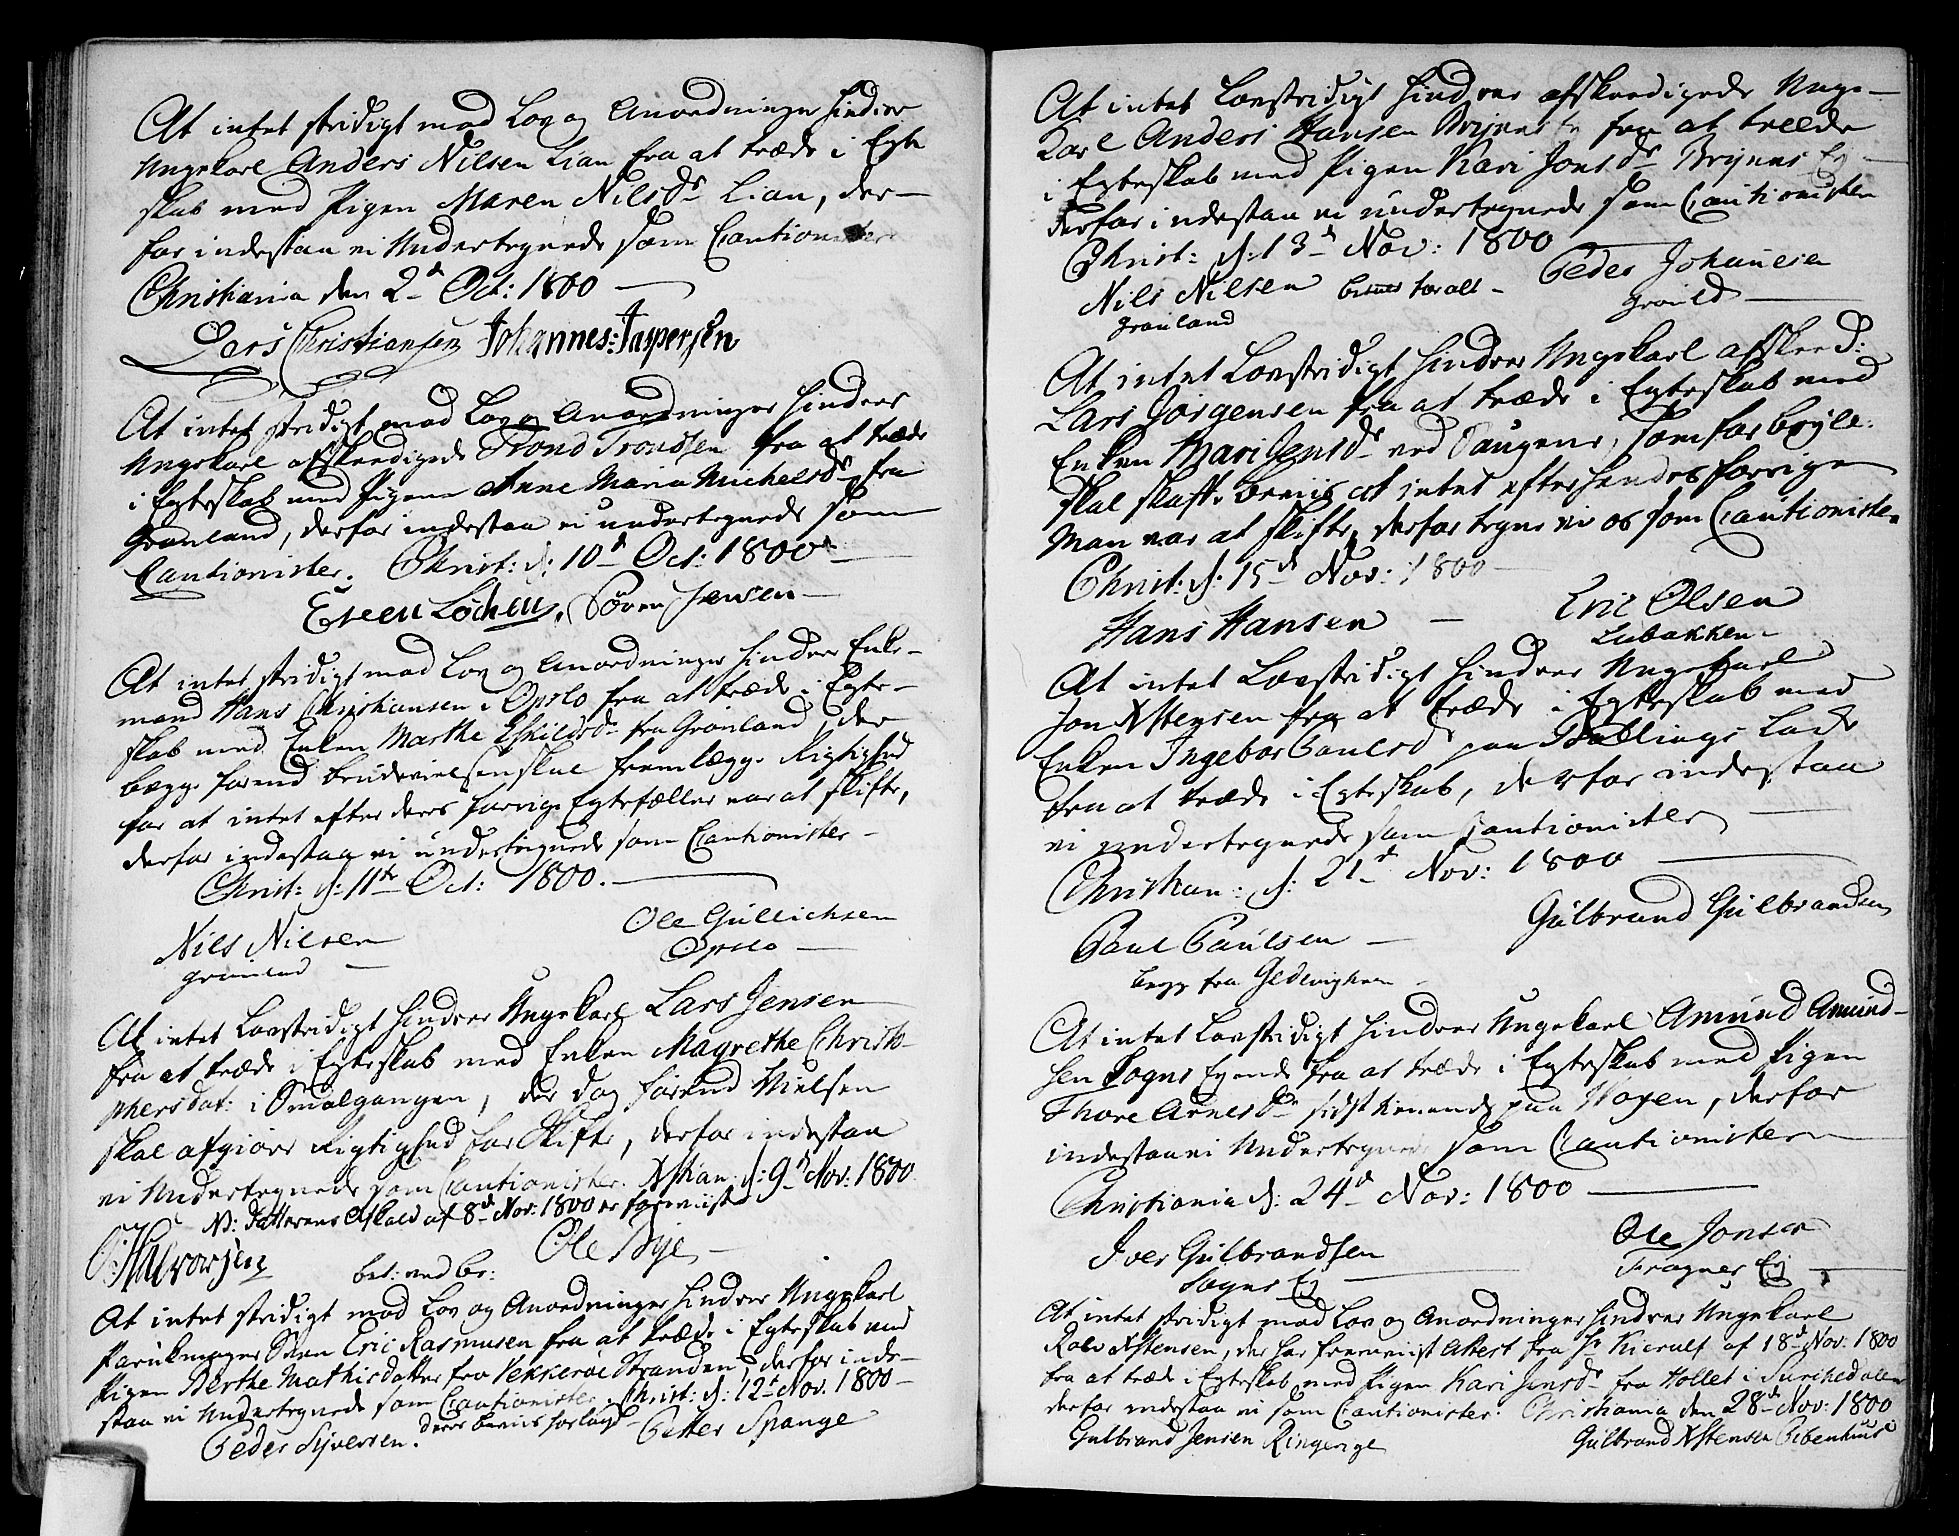 At intet stridigt med Lov og Anordninger hindrer
Ungekarl Anders Nilsen Lian fra at træde i Egte
skab med Pigen Maren Nilsdr Lian, der-
for indestaa vi Undertegnede som Cautionister
Christiania den 2d Oct: 1800
Lars Christiansen Johannes: Jaspersen
At intet stridigt med Lov og Anordninger hindrer
Ungekarl afskeedigede Trond Trondsen fra at træde
i Egteskab med Pigen Anne Maria Michelsdr fra
Grønland, derfor indestaa vi undertegnede som
Cautionister. Christ: d: 10d Oct: 1800
Løchen, Sören Jensen
At intet stridigt med Lov og Anordninger hindrer Enke-
mand Hans Christiansen i Opslo fra at træde i Egte-
skab med Enken Marthe Eskildsdr fra Grønland, der
begge forend brudevielsen skal fremlægge Rigtighed
for at intet efter deres forrige Egtefæller var at skifte,
derfor indestaa vi undertegnede som Cautionister
Christ: d: 11te Oct: 1800.
Nils Nilsen Ole Gullichsen
Grønland Opslo
At intet Lovstridigt hindrer Ungekarl Lars Jensen
fra at træde i Egteskab med Enken Magrethe Christo-
phersdat: i Smalgangen, der dog forend Vielsen
skal afgiøre Rigtighed for Skifte, derfor indestaa
vi Undertegnede som Cautionister. Xstian: d: 9d Nov: 1800
NB: af 8d Nov: 1800 er foreviist
Halvorsen Ole Bye
bet: ved Br:
At intet stridigt med Lov og Anordninger hindrer Ungekarl
Parukmager Sven Eric Rasmusen fra at træde i Egteskab med
Pigen Berthe Mathisdatter fra Vekkerøe Stranden, derfor inde-
staa vi Undertegnede som Cautionister. Christ: d: 12t Nov. 1800
Peder Syversen. deres beviis forlagt Petter Spange
At intet Lovstridigt hindrer afskeedigede Unge-
Karl Anders Hansen Bryns fra at træde
i Egteskab med Pigen Kari Jonsdr Bryns Ej
derfor indestaa vi undertegnede som Cautionister
Christ: d: 13d Nov: 1800
Nils Nilsen Peder Johannesen
Grønland Grønld
At intet Lovstridigt hindrer Ungekarl afskeed:
Lars Jörgensen fra at træde i Egteskab med
Enken Mari Jensdr ved Saugene, som for brylle:
skal skaffe beviis at intet efter hendes forrige
Man var at skifte, derfor tegne vi os som Cautionister
Christ: d: 15d Nov: 1800
Hans Hansen Eric Olsen
Lubakken
At intet Lovstridigt hindrer Ungekarl
Jon Xstensen fra at træde i Egteskab med
Enken Ingebor Paulsdr paa Lade
fra at træde i Egteskab, derfor indestaa
vi undertegnede som Cautionister
Christian: d: 21d Nov: 1800
Paul Paulsen Gulbrand Gulbrandsen
begge fra
At intet Lovstridigt hindrer Ungekarl Amund Amund-
sen Sogns Eyende fra at træde i Egteskab med Pigen
Thore Arnesdr sidst tienende paa Woyen, derfor
indestaa vi Undertegnede som Cautionister
Christiania d: 24d Nov: 1800
Iver Gulbrandsen Ole Jonsen
Sogns Ej Frogner Ej
At intet stridigt med Lov og Anordninger hindrer Ungekarl
Xstensen, der har fremviist Attest fra Hr Kierulf af 18d Nov: 1800
fra at træde i Egteskab med Pigen Kari Jensdr fra Hollet i Surchedalen
derfor indestaa vi som Cautionister. Christiania den 28d Nov: 1800
Gulbrand Jensen Ringerige Gulbrand Xstensen Pibenhuus